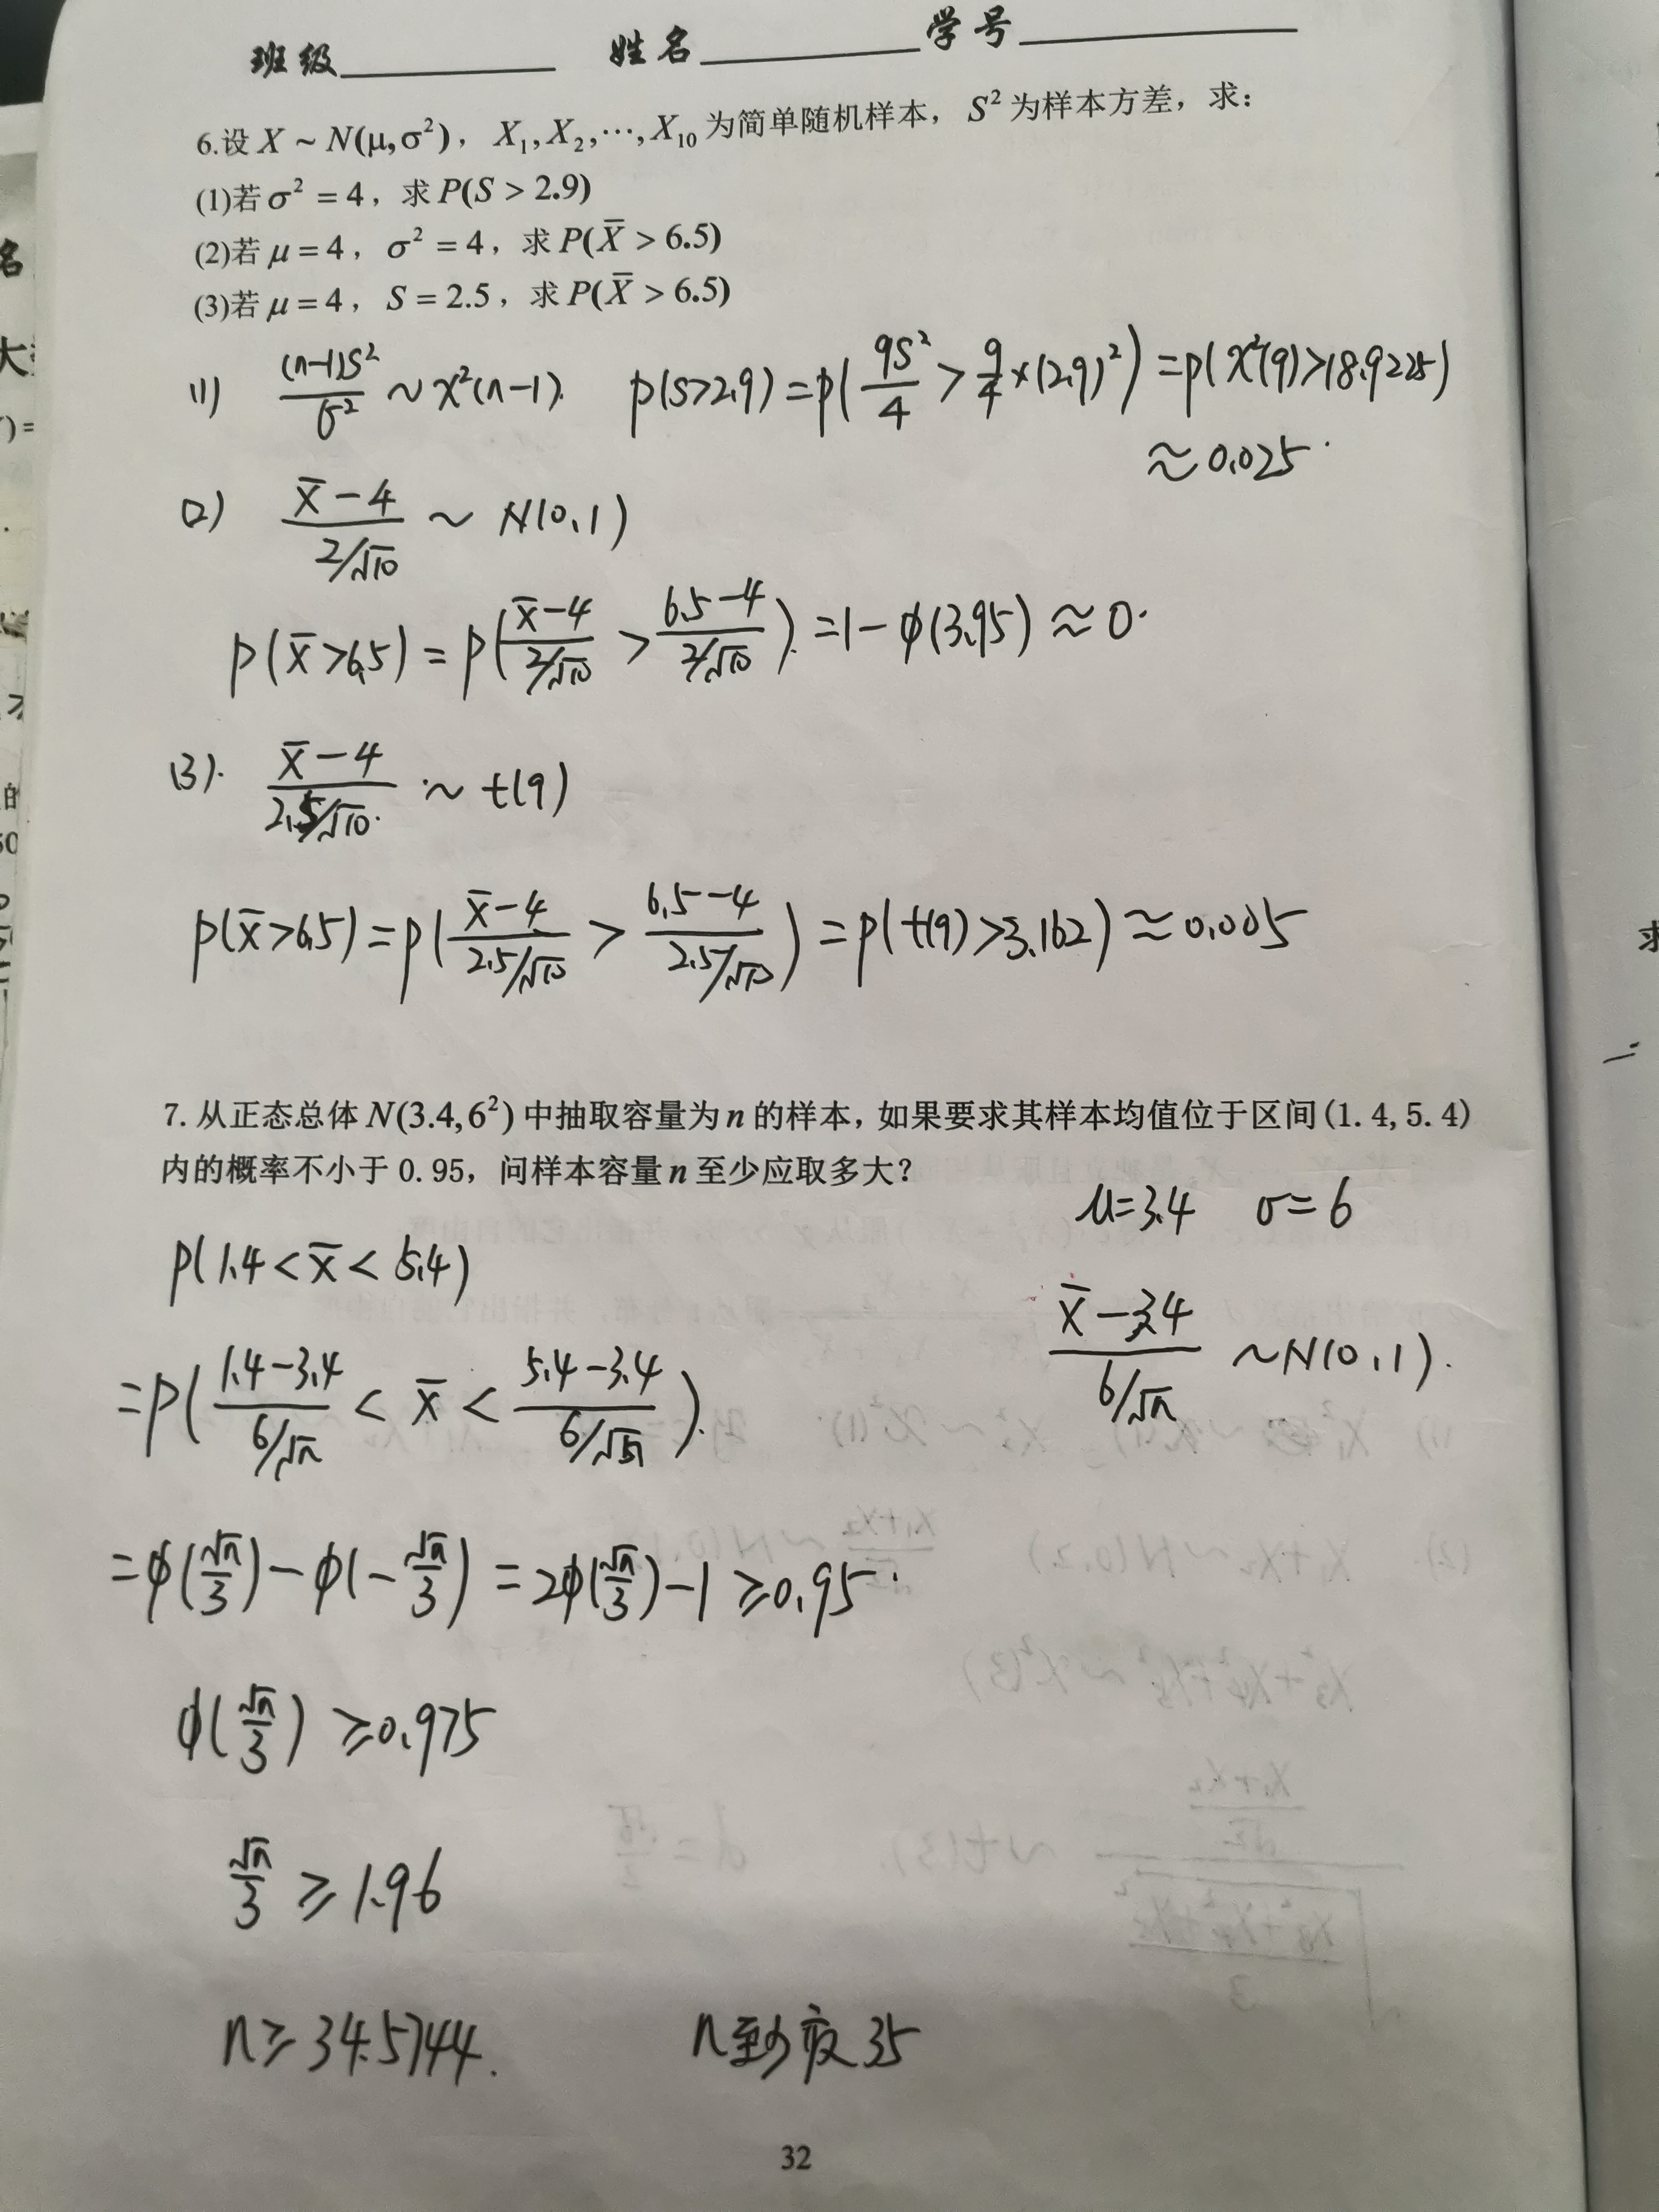 班级 姓名 学号
6.设 X ~ N(μ,σ²), X₁,X₂,⋯,X₁₀ 为简单随机样本, S² 为样本方差, 求:
(1)若 σ² = 4, 求 P(S > 2.9)
(2)若 μ = 4, σ² = 4, 求 P(X̄ > 6.5)
(3)若 μ = 4, S = 2.5, 求 P(X̄ > 6.5)
(1) (n-1)S²/σ² ~ χ²(n-1). P(S>2.9) = P(9S²/4 > 9/4×(2.9)²) = P(χ²(9)>18.9225)
≈0.025.
(2) (X̄-4)/(2/√10) ~ N(0,1)
P(X̄>6.5) = P((X̄-4)/(2/√10) > (6.5-4)/(2/√10)) = 1-φ(3.95) ≈ 0.
(3). (X̄-4)/(2.5/√10) ~ t(9)
P(X̄>6.5) = P((X̄-4)/(2.5/√10) > (6.5-4)/(2.5/√10)) = P(t(9)>3.162) ≈ 0.005
7. 从正态总体 N(3.4,6²) 中抽取容量为 n 的样本, 如果要求其样本均值位于区间 (1.4,5.4)
内的概率不小于 0.95, 问样本容量 n 至少应取多大?
μ=3.4 σ=6
P(1.4<X̄<5.4)
(X̄-3.4)/(6/√n) ~N(0,1).
=P((1.4-3.4)/(6/√n) < X̄ < (5.4-3.4)/(6/√n)).
=φ(√n/3)-φ(-√n/3) = 2φ(√n/3)-1 ≥0.95.
φ(√n/3) ≥0.975
√n/3 ≥ 1.96
n≥34.5744. n至少取35
32